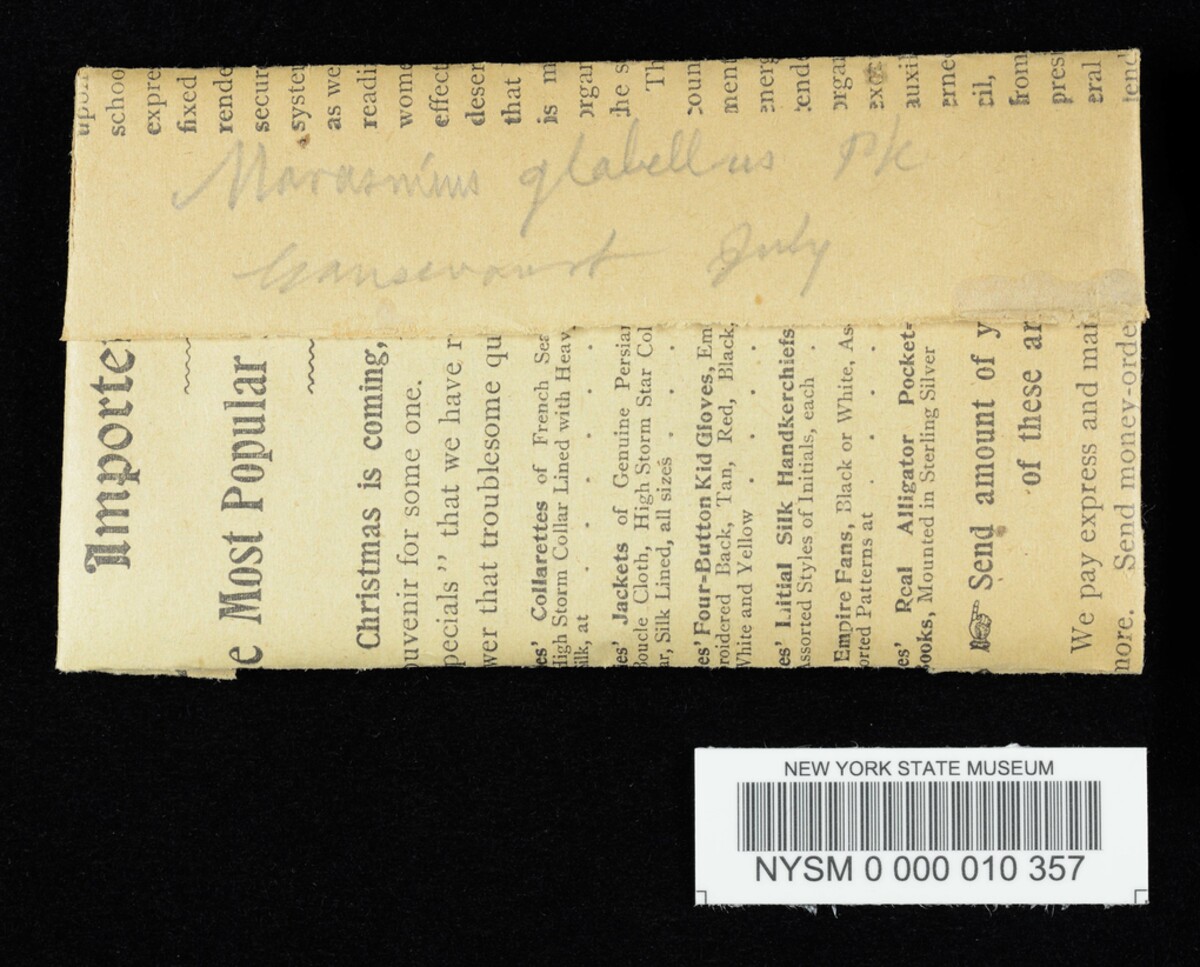 schoo
expre
fixed
rende
secur
system
as we
readi
wome
effect
deser
that
is m
organ
the s
Th
coun
ment
energ
tend
organ
exer
auxil
erne
cil,
from
pres
eral
tend
Marasmius glabellus Pk
Gansevoort July
Importe
e Most Popular
Christmas is coming,
ouvenir for some one.
pecials” that we have r
wer that troublesome qu
es' Collarettes of French Sea
High Storm Collar Lined with Heav
Silk, at . . . . . .
es' Jackets of Genuine Persian
Boucle Cloth, High Storm Star Col
ar, Silk Lined, all sizes . . .
es' Four-Button Kid Gloves, Em
broidered Back, Tan, Red, Black,
White and Yellow . . . .
es' Initial Silk Handkerchiefs
Assorted Styles of Initials, each .
Empire Fans, Black or White, As
orted Patterns at . . . .
es' Real Alligator Pocket-
Books, Mounted in Sterling Silver
☞ Send amount of y
of these ar
We pay express and mai
more. Send money-orde
NEW YORK STATE MUSEUM
NYSM 0 000 010 357